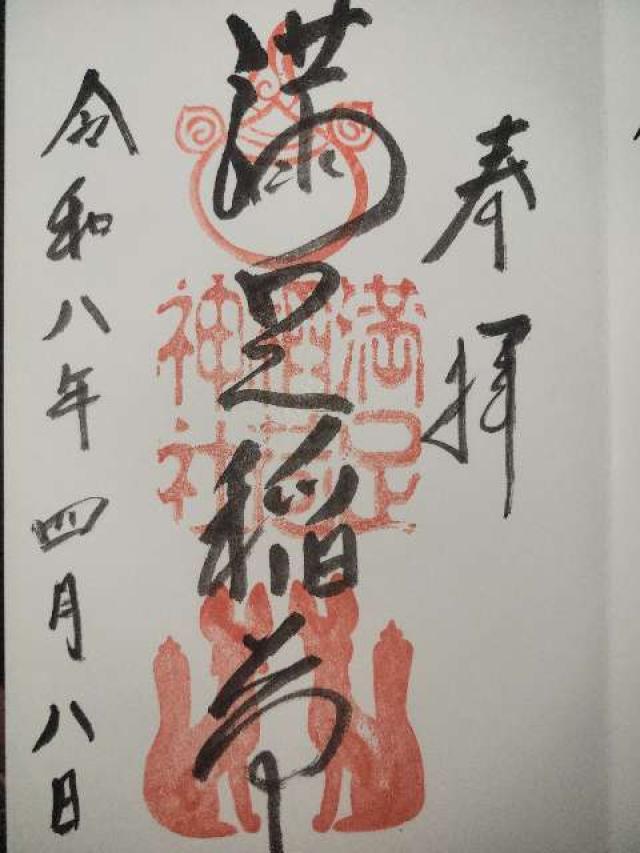 奉拝
満足稲荷
満足
稲荷
神社
令和八年四月八日